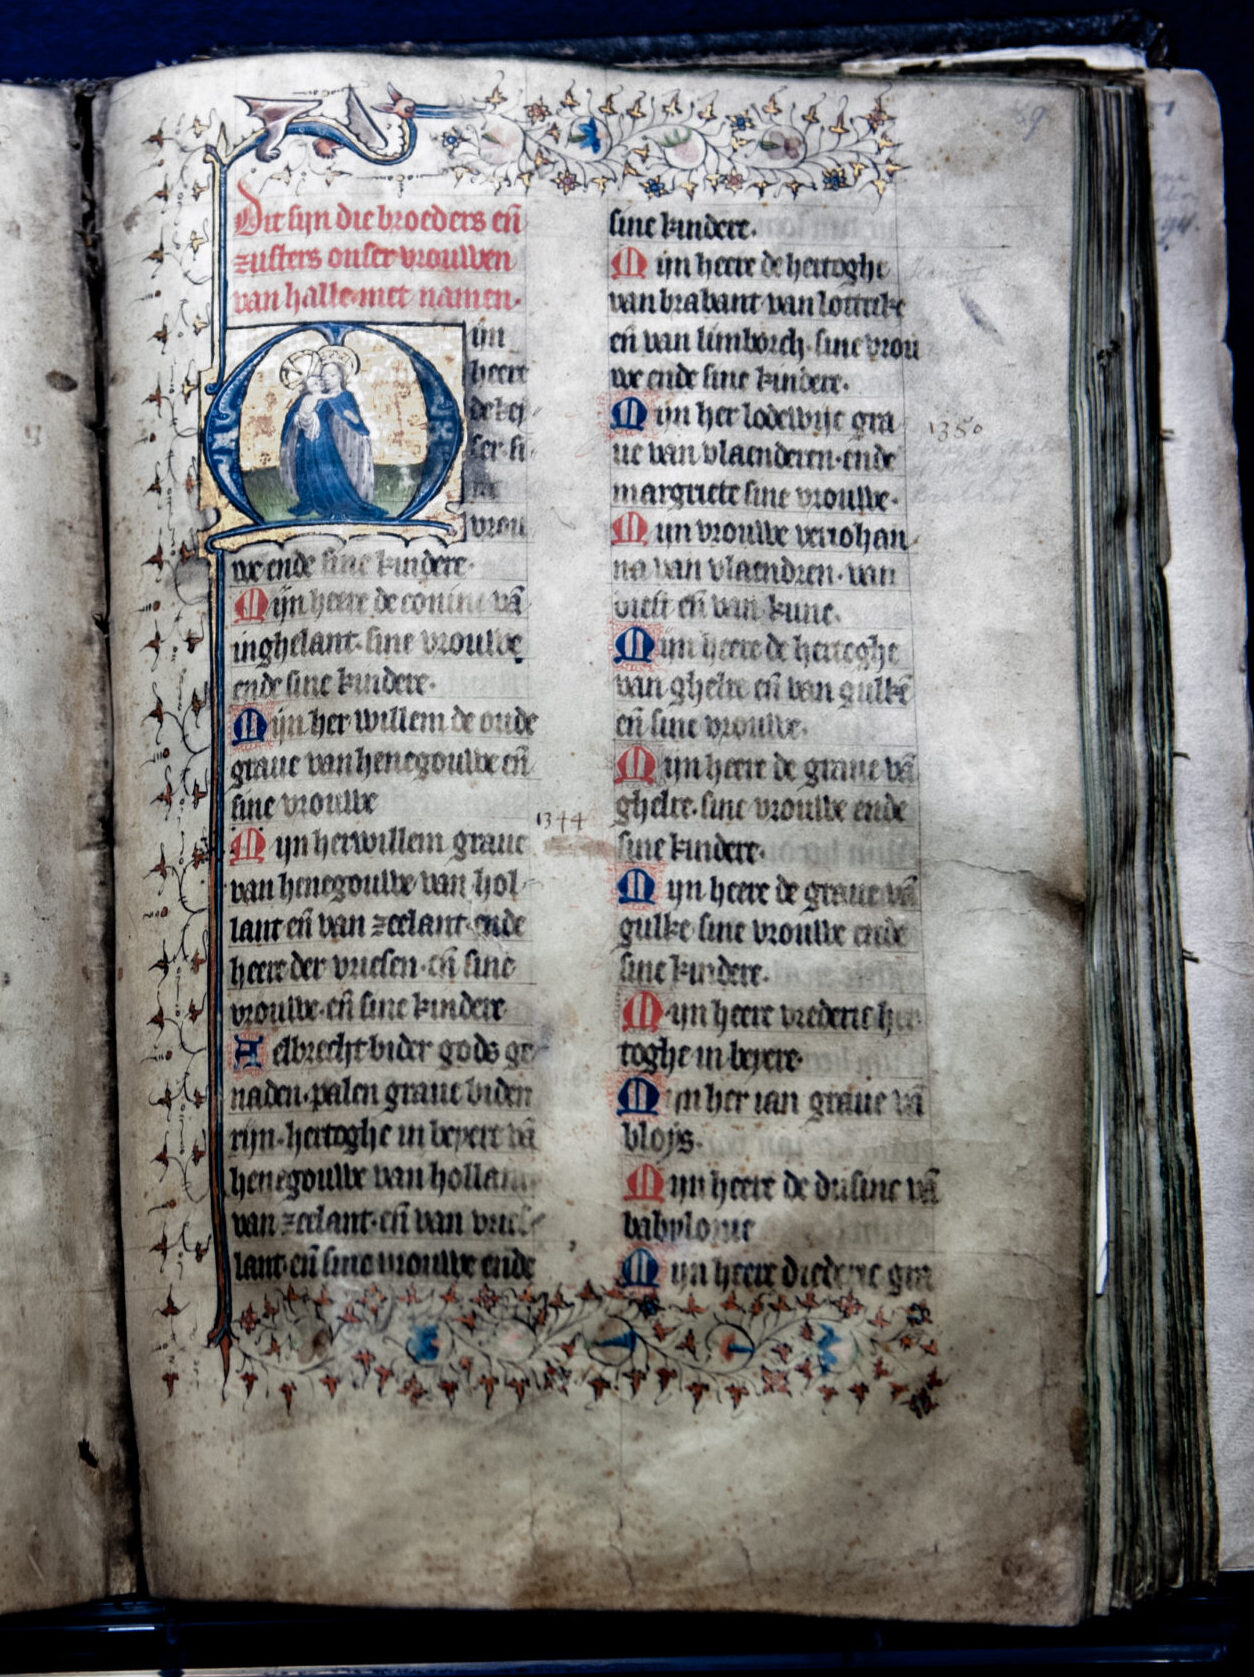 Dit sijn die broeders en̄
zusters onser vrouwen
van halle met namen·
Mijn
heere
de kei
ser· si
ne
vrou
we ende sine kindere·
Mijn heere de coninc vā
inghelant· sine vrouwe
ende sine kindere·
Mijn her willem de oude
graue van henegouwe en̄
sine vrouwe
Mijn her willem graue
van henegouwe van hol
lant en̄ van zeelant· ende
heere der vriesen· en̄ sine
vrouwe· en̄ sine kindere
Aelbrecht bider gods ge
naden· palen graue biden
rijn· hertoghe in beyere vā
henegouwe van hollant
van zeelant· en̄ van vries
lant· en̄ sine vrouwe ende
1344
sine kindere·
Mijn heere de hertoghe
van brabant van
en̄ van limborch· sine vrou
we ende sine kindere·
Mijn her lodewijc gra
ue van vlaenderen· ende
margriete sine vrouwe·
Mijn vrouwe ver iohan
na van vlaendren· van
en̄ van
Mijn heere de hertoghe
van ghelre en̄ van gulkē
en̄ sine vrouwe·
Mijn heere de graue vā
ghelre· sine vrouwe ende
sine kindere·
Mijn heere de graue vā
gulke sine vrouwe ende
sine kindere·
Mijn heere vrederic her
toghe in beyere·
Mijn her ian graue vā
bloys·
Mijn heere de dusinc vā
babylonie
Mijn heere diederic gra
1350